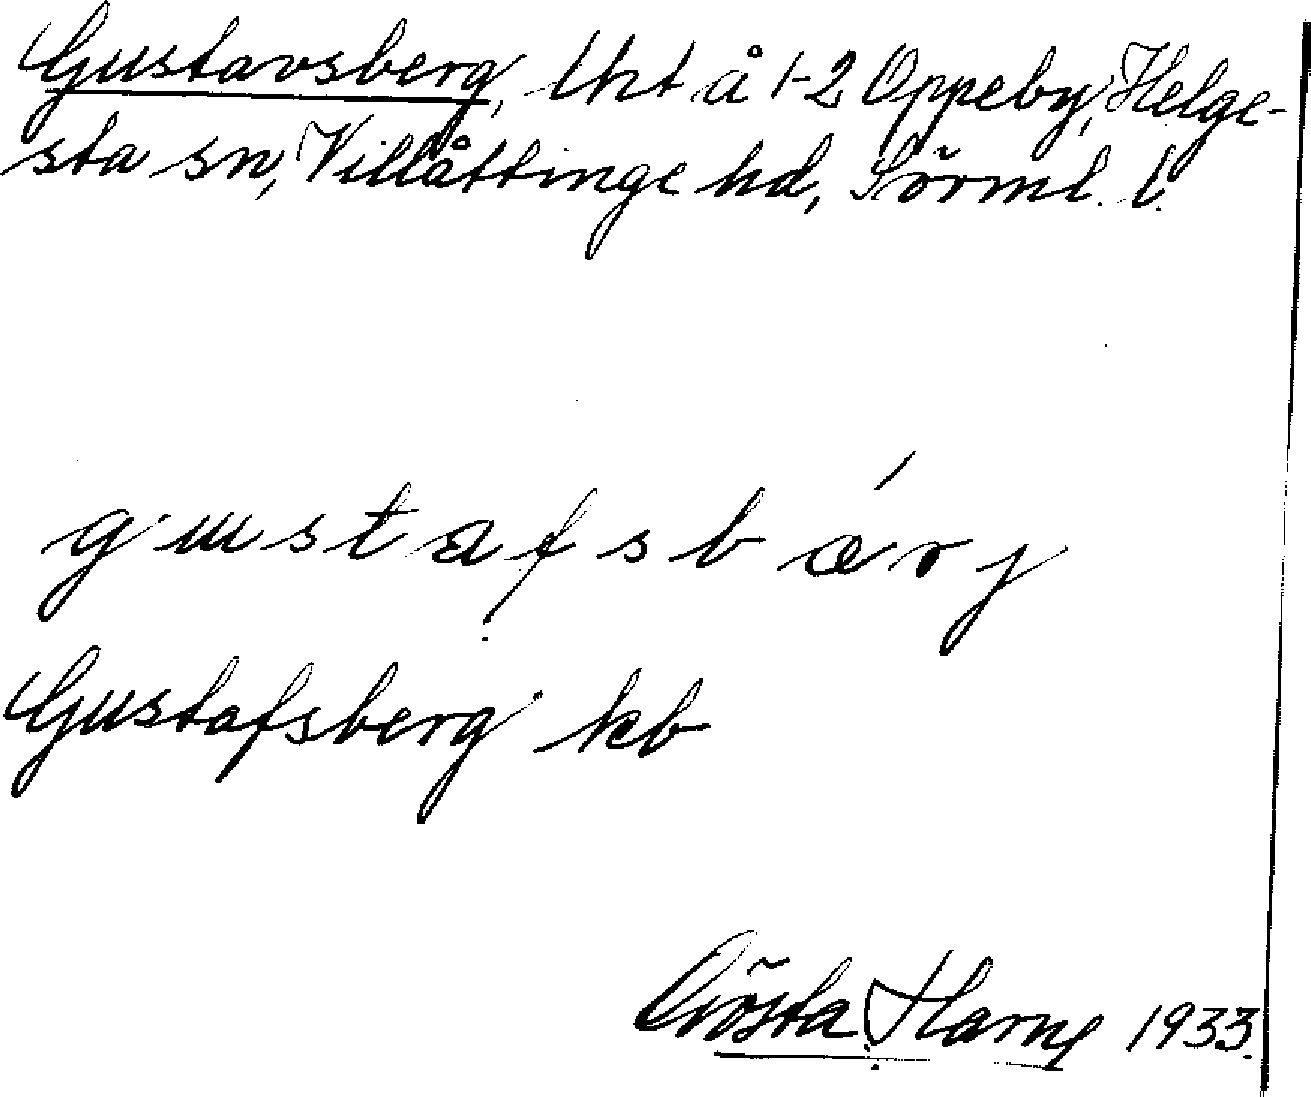 Gustavsberg, lht å 1-2 Oppeby, Helge-
sta sn, Villåttinge hd, Sörml. l.
gustafsbærj
Gustafsberg kb
Gösta Harne 1933.